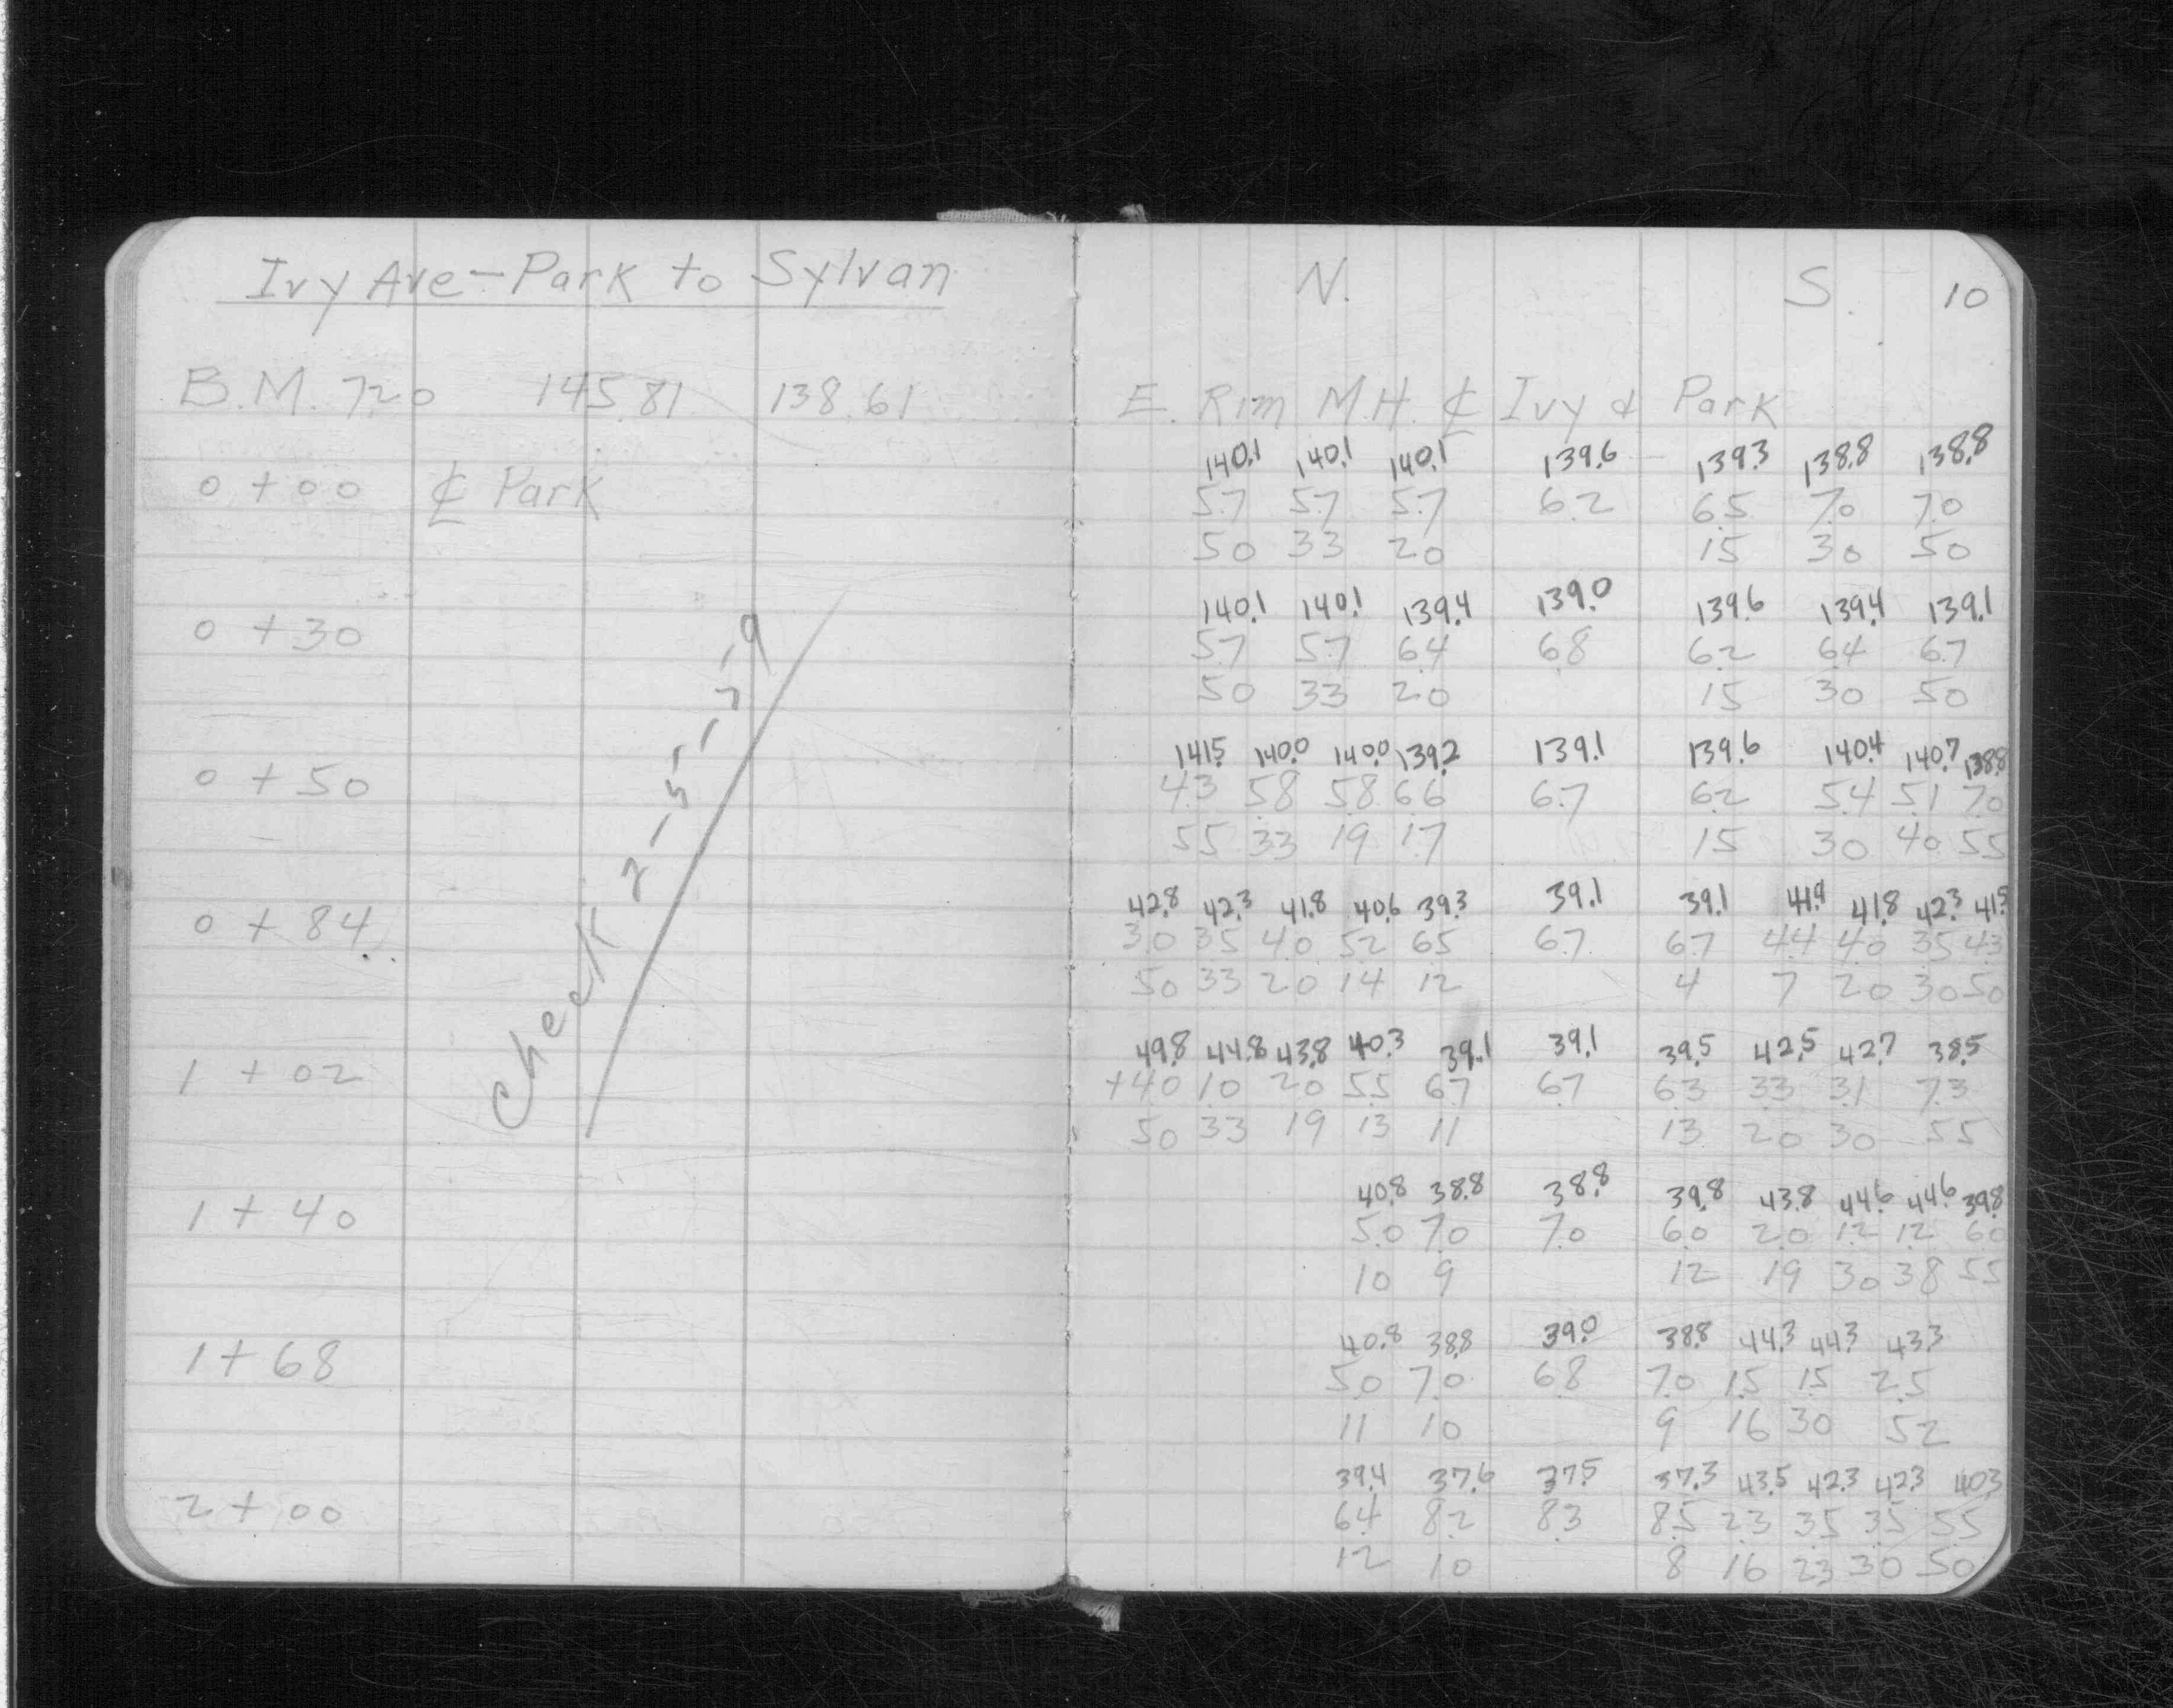 Ivy Ave - Park to Sylvan
B.M. 7.20 145.81 138.61
0 + 00 ℄ Park
0 + 30
0 + 50
0 + 84
1 + 02
1 + 40
1 + 68
2 + 00
Check
N. S. 10
E. Rim M.H. ℄ Ivy & Park
140.1 140.1 140.1 139.6 139.3 138.8 138.8
5.7 5.7 5.7 6.2 6.5 7.0 7.0
50 33 20 15 30 50
140.1 140.1 139.4 139.0 139.6 139.4 139.1
5.7 5.7 6.4 6.8 6.2 6.4 6.7
50 33 20 15 30 50
141.5 140.0 140.0 139.2 139.1 139.6 140.4 140.7 138.8
4.3 5.8 5.8 6.6 6.7 6.2 5.4 5.1 7.0
55 33 19 17 15 30 40 55
42.8 42.3 41.8 40.6 39.3 39.1 39.1 41.4 41.8 42.3 41.5
3.0 3.5 4.0 5.2 6.5 6.7 6.7 4.4 4.0 3.5 4.3
50 33 20 14 12 4 7 20 30 50
49.8 44.8 43.8 40.3 39.1 39.1 39.5 42.5 42.7 38.5
+4.0 1.0 2.0 5.5 6.7 6.7 6.3 3.3 3.1 7.3
50 33 19 13 11 13 20 30 55
40.8 38.8 38.8 39.8 43.8 44.6 44.6 39.8
5.0 7.0 7.0 6.0 2.0 1.2 1.2 6.0
10 9 12 19 30 38 55
40.8 38.8 39.0 38.8 44.3 44.3 43.3
5.0 7.0 6.8 7.0 1.5 1.5 2.5
11 10 9 16 30 52
39.4 37.6 37.5 37.3 43.5 42.3 42.3 40.3
6.4 8.2 8.3 8.5 2.3 3.5 3.5 5.5
12 10 8 16 23 30 50